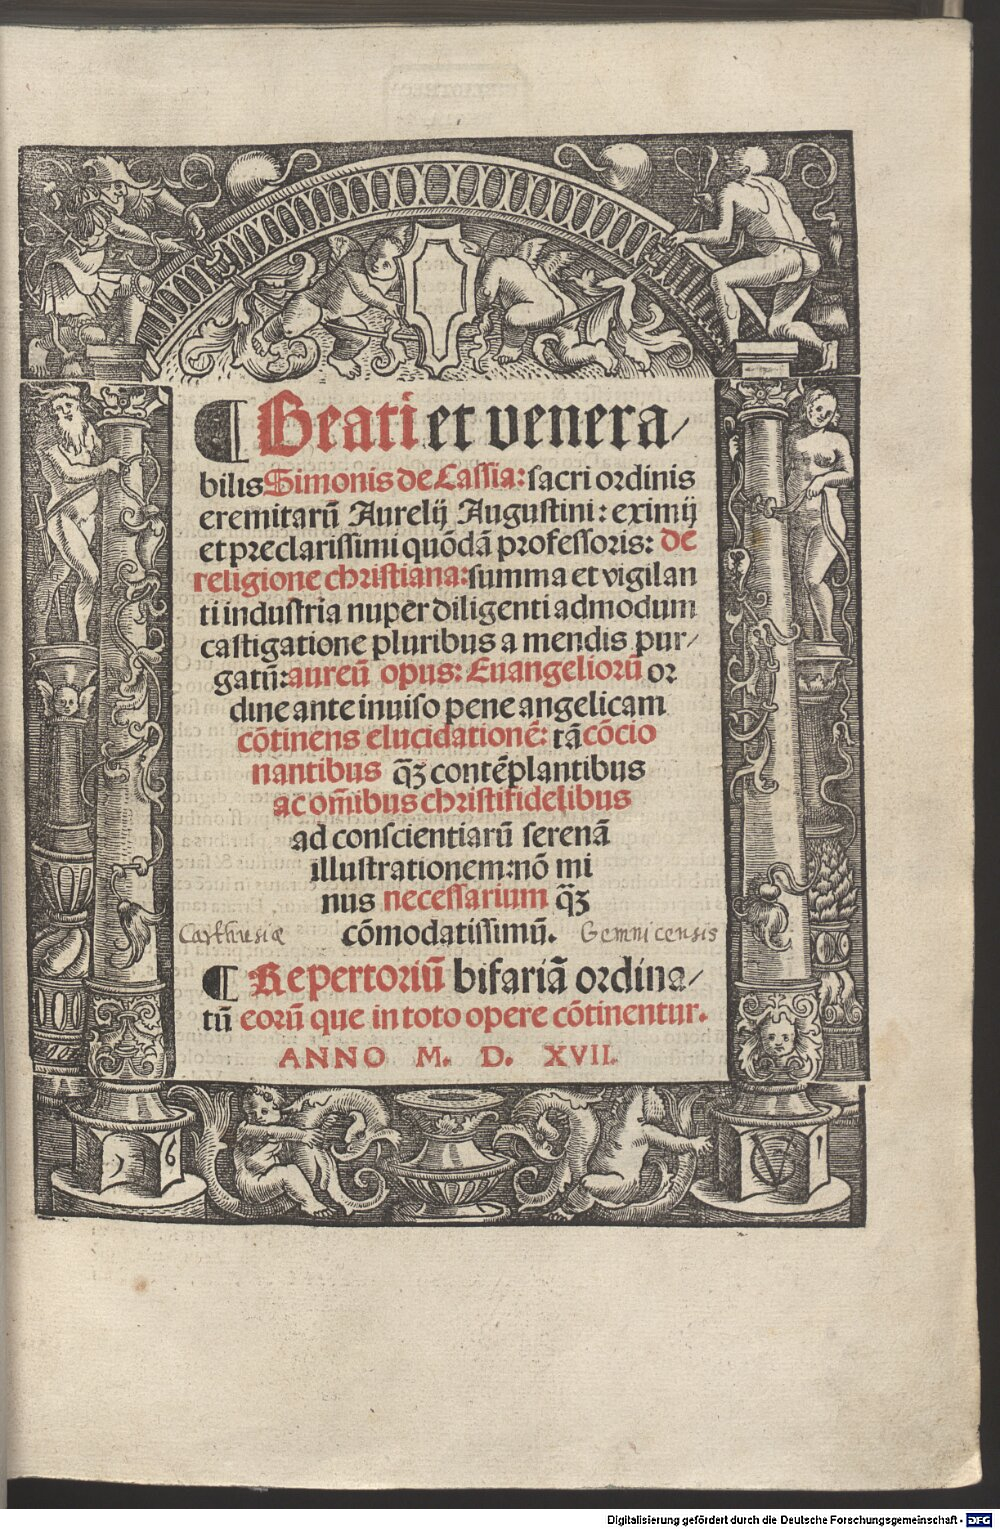 ¶ Beati et venera/
bilis Simonis de Cassia: sacri ordinis
eremitarū Aurelij Augustini: eximij
et preclarissimi quōdā professoris: de
religione christiana: summa et vigilan
ti industria nuper diligenti admodum
castigatione pluribus a mendis pur/
gatū: aureū opus: Euangeliorū or
dine ante inuiso pene angelicam
cōtinens elucidationē: tā cōcio
nantibus qʒ contēplantibus
ac om̄ibus christifidelibus
ad conscientiarū serenā
illustrationem: nō mi
nus necessarium q̄ʒ
cōmodatissimū.
Carthusiæ Gemnicensis
¶ Repertoriū bifariā ordina/
tū eorū que in toto opere cōtinentur.
ANNO M. D. XVII.
Digitalisierung gefördert durch die Deutsche Forschungsgemeinschaft - DFG